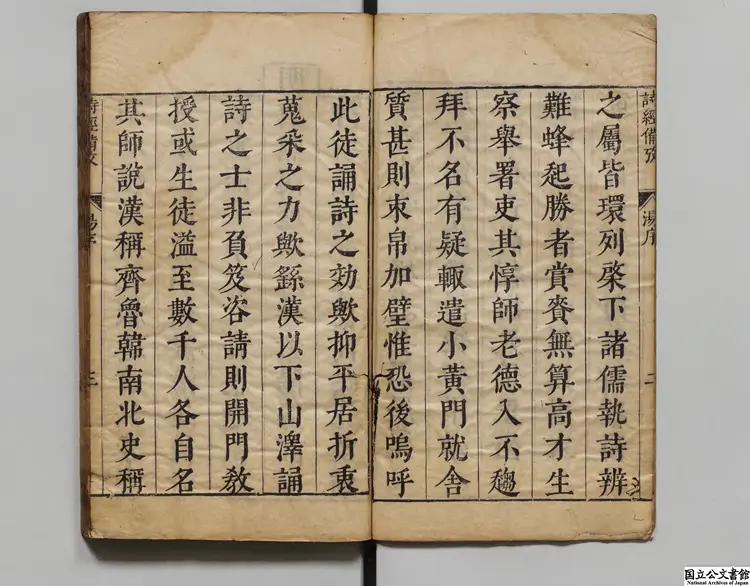 詩經備攷
湯序
二
之屬皆環列榮下諸儒執詩辨
難蜂起勝者賞賚無算高才生
察舉署吏其惇師老德入不趨
拜不名有疑輙遣小黃門就舍
質甚則束帛加璧惟恐後嗚呼
此徒誦詩之効歟抑平居折衷
蒐采之力歟繇漢以下山澤誦
詩之士非負笈咨請則開門教
授或生徒溢至數千人各自名
其師說漢稱齊魯韓南北史稱
詩經備攷
湯序
三
国立公文書館
National Archives of Japan